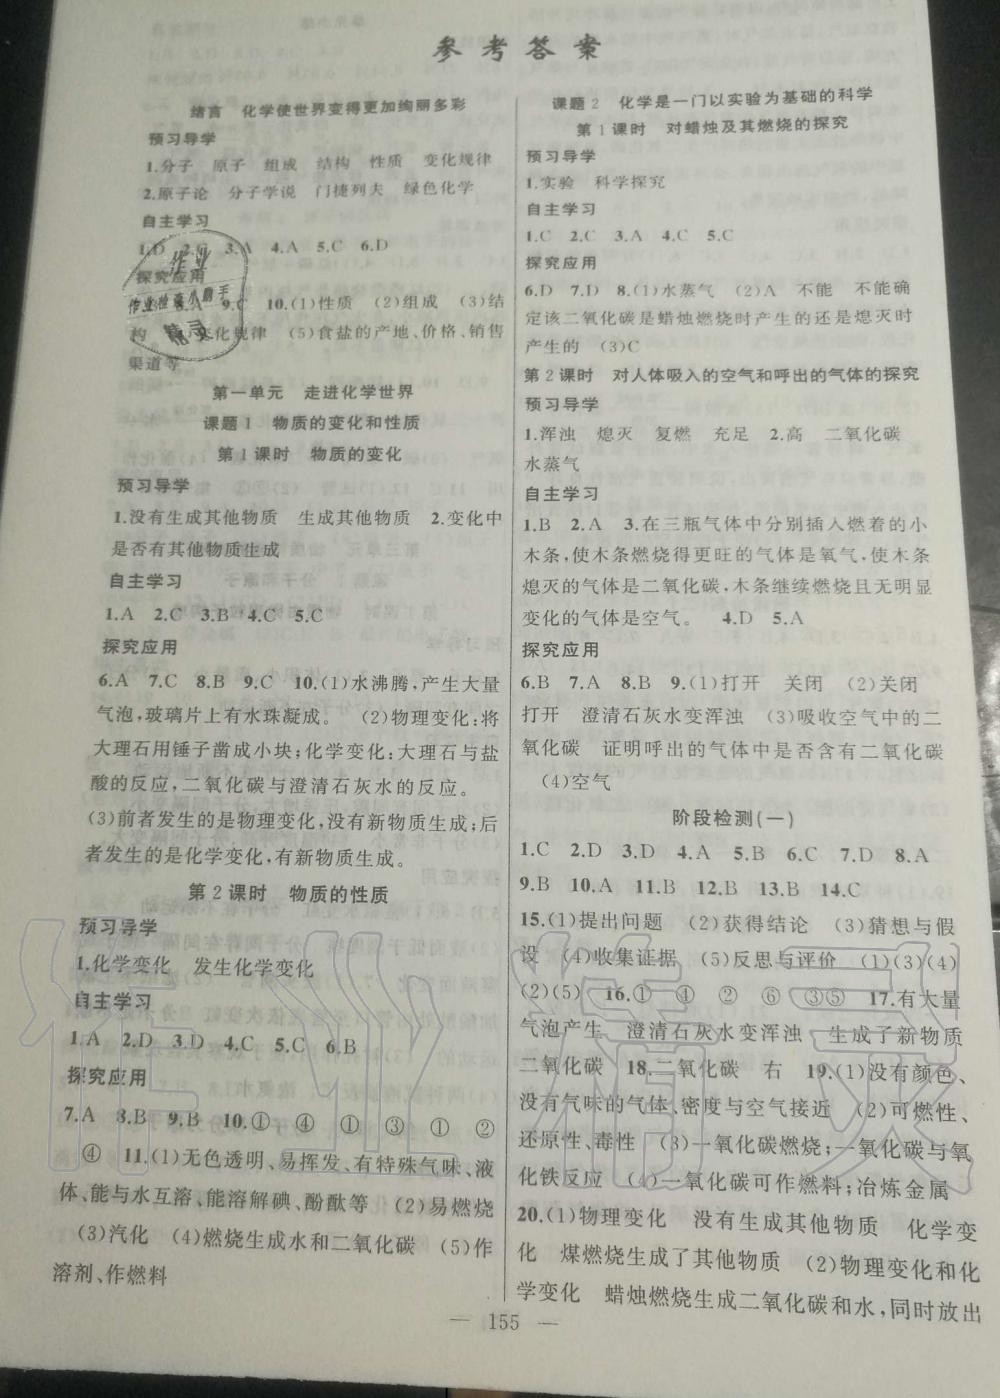 参考答案
绪言 化学使世界变得更加绚丽多彩
预习导学
1.分子 原子 组成 结构 性质 变化规律
2.原子论 分子学说 门捷列夫 绿色化学
自主学习
1.D 2.C 3.A 4.A 5.C 6.D
探究应用
8.A 9.C 10.(1)性质 (2)组成 (3)结
构 变化规律 (5)食盐的产地、价格、销售
渠道等
第一单元 走进化学世界
课题1 物质的变化和性质
第1课时 物质的变化
预习导学
1.没有生成其他物质 生成其他物质 2.变化中
是否有其他物质生成
自主学习
1.A 2.C 3.B 4.C 5.C
探究应用
6.A 7.C 8.B 9.C 10.(1)水沸腾,产生大量
气泡,玻璃片上有水珠凝成。 (2)物理变化:将
大理石用锤子凿成小块;化学变化:大理石与盐
酸的反应,二氧化碳与澄清石灰水的反应。
(3)前者发生的是物理变化,没有新物质生成;后
者发生的是化学变化,有新物质生成。
第2课时 物质的性质
预习导学
1.化学变化 发生化学变化
自主学习
1.A 2.D 3.D 4.C 5.C 6.B
探究应用
7.A 8.B 9.B 10.① ④ ① ③ ① ②
④ 11.(1)无色透明、易挥发、有特殊气味、液
体、能与水互溶、能溶解碘、酚酞等 (2)易燃烧
(3)汽化 (4)燃烧生成水和二氧化碳 (5)作
溶剂、作燃料
课题2 化学是一门以实验为基础的科学
第1课时 对蜡烛及其燃烧的探究
预习导学
1.实验 科学探究
自主学习
1.C 2.C 3.A 4.C 5.C
探究应用
6.D 7.D 8.(1)水蒸气 (2)A 不能 不能确
定该二氧化碳是蜡烛燃烧时产生的还是熄灭时
产生的 (3)C
第2课时 对人体吸入的空气和呼出的气体的探究
预习导学
1.浑浊 熄灭 复燃 充足 2.高 二氧化碳
水蒸气
自主学习
1.B 2.A 3.在三瓶气体中分别插入燃着的小
木条,使木条燃烧得更旺的气体是氧气,使木条
熄灭的气体是二氧化碳,木条继续燃烧且无明显
变化的气体是空气。 4.D 5.A
探究应用
6.B 7.A 8.B 9.(1)打开 关闭 (2)关闭
打开 澄清石灰水变浑浊 (3)吸收空气中的二
氧化碳 证明呼出的气体中是否含有二氧化碳
(4)空气
阶段检测(一)
1.C 2.D 3.D 4.A 5.B 6.C 7.D 8.A
9.B 10.A 11.B 12.B 13.B 14.C
15.(1)提出问题 (2)获得结论 (3)猜想与假
设 (4)收集证据 (5)反思与评价 (1)(3)(4)
(2)(5) 16.① ④ ② ⑥ ③⑤ 17.有大量
气泡产生 澄清石灰水变浑浊 生成了新物质
二氧化碳 18.二氧化碳 右 19.(1)没有颜色、
没有气味的气体、密度与空气接近 (2)可燃性、
还原性、毒性 (3)一氧化碳燃烧;一氧化碳与氧
化铁反应 (4)一氧化碳可作燃料;冶炼金属
20.(1)物理变化 没有生成其他物质 化学变
化 煤燃烧生成了其他物质 (2)物理变化和化
学变化 蜡烛燃烧生成二氧化碳和水,同时放出
— 155 —
作业
作业检查小帮手
精灵